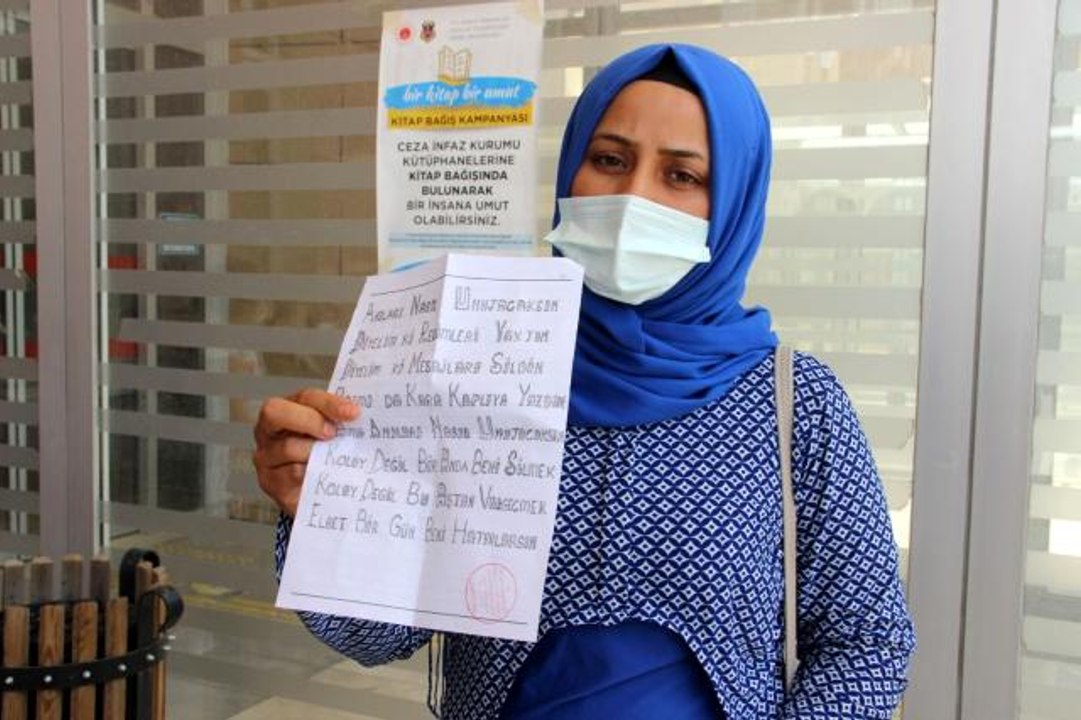 bir kitap bir umut
KİTAP BAĞIŞ KAMPANYASI
CEZA İNFAZ KURUMU
KÜTÜPHANELERİNE
KİTAP BAĞIŞINDA
BULUNARAK
BİR İNSANA UMUT
OLABİLİRSİNİZ.
UNUTACAKSIN
DİYELİM Kİ RESİMLERİ YAKTIN
DİYELİM Kİ MESAJLARI SİLDİN
DA KARA KAPLIYA
UNUTACAKSIN
KOLAY DEĞİL BİR ANDA BENİ SİLMEK
KOLAY DEĞİL BU AŞTAN VAZGEÇMEK
ELBET BİR GÜN BENİ HATIRLARSIN